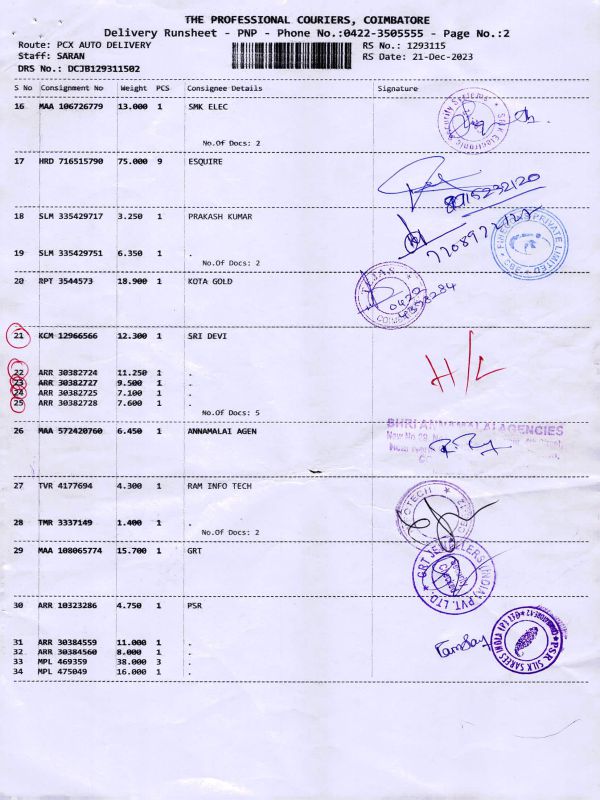 THE PROFESSIONAL COURIERS, COIMBATORE
Delivery Runsheet - PNP - Phone No.:0422-3505555 - Page No.:2
Route: PCX AUTO DELIVERY RS No.: 1293115
Staff: SARAN RS Date: 21-Dec-2023
DRS No.: DCJB129311502
S No Consignment No Weight PCS Consignee Details Signature
16 MAA 106726779 13.000 1 SMK ELEC
No.Of Docs: 2
17 HRD 716515790 75.000 9 ESQUIRE
8015232120
18 SLM 335429717 3.250 1 PRAKASH KUMAR
19 SLM 335429751 6.350 1 .
No.Of Docs: 2
20 RPT 3544573 18.900 1 KOTA GOLD
0422
4398284
21 KCM 12966566 12.300 1 SRI DEVI
H/L
22 ARR 30382724 11.250 1 .
23 ARR 30382727 9.500 1 .
24 ARR 30382725 7.100 1 .
25 ARR 30382728 7.600 1 .
No.Of Docs: 5
26 MAA 572420760 6.450 1 ANNAMALAI AGEN
SHRI ANNAMALAI AGENCIES
27 TVR 4177694 4.300 1 RAM INFO TECH
28 TMR 3337149 1.400 1 .
No.Of Docs: 2
29 MAA 108065774 15.700 1 GRT
GRT JEWELLERS (INDIA) PVT. LTD.
30 ARR 10323286 4.750 1 PSR
PSR SILK SAREES INDIA
31 ARR 30384559 11.000 1 .
32 ARR 30384560 8.000 1 .
33 MPL 469359 38.000 3 .
34 MPL 475049 16.000 1 .